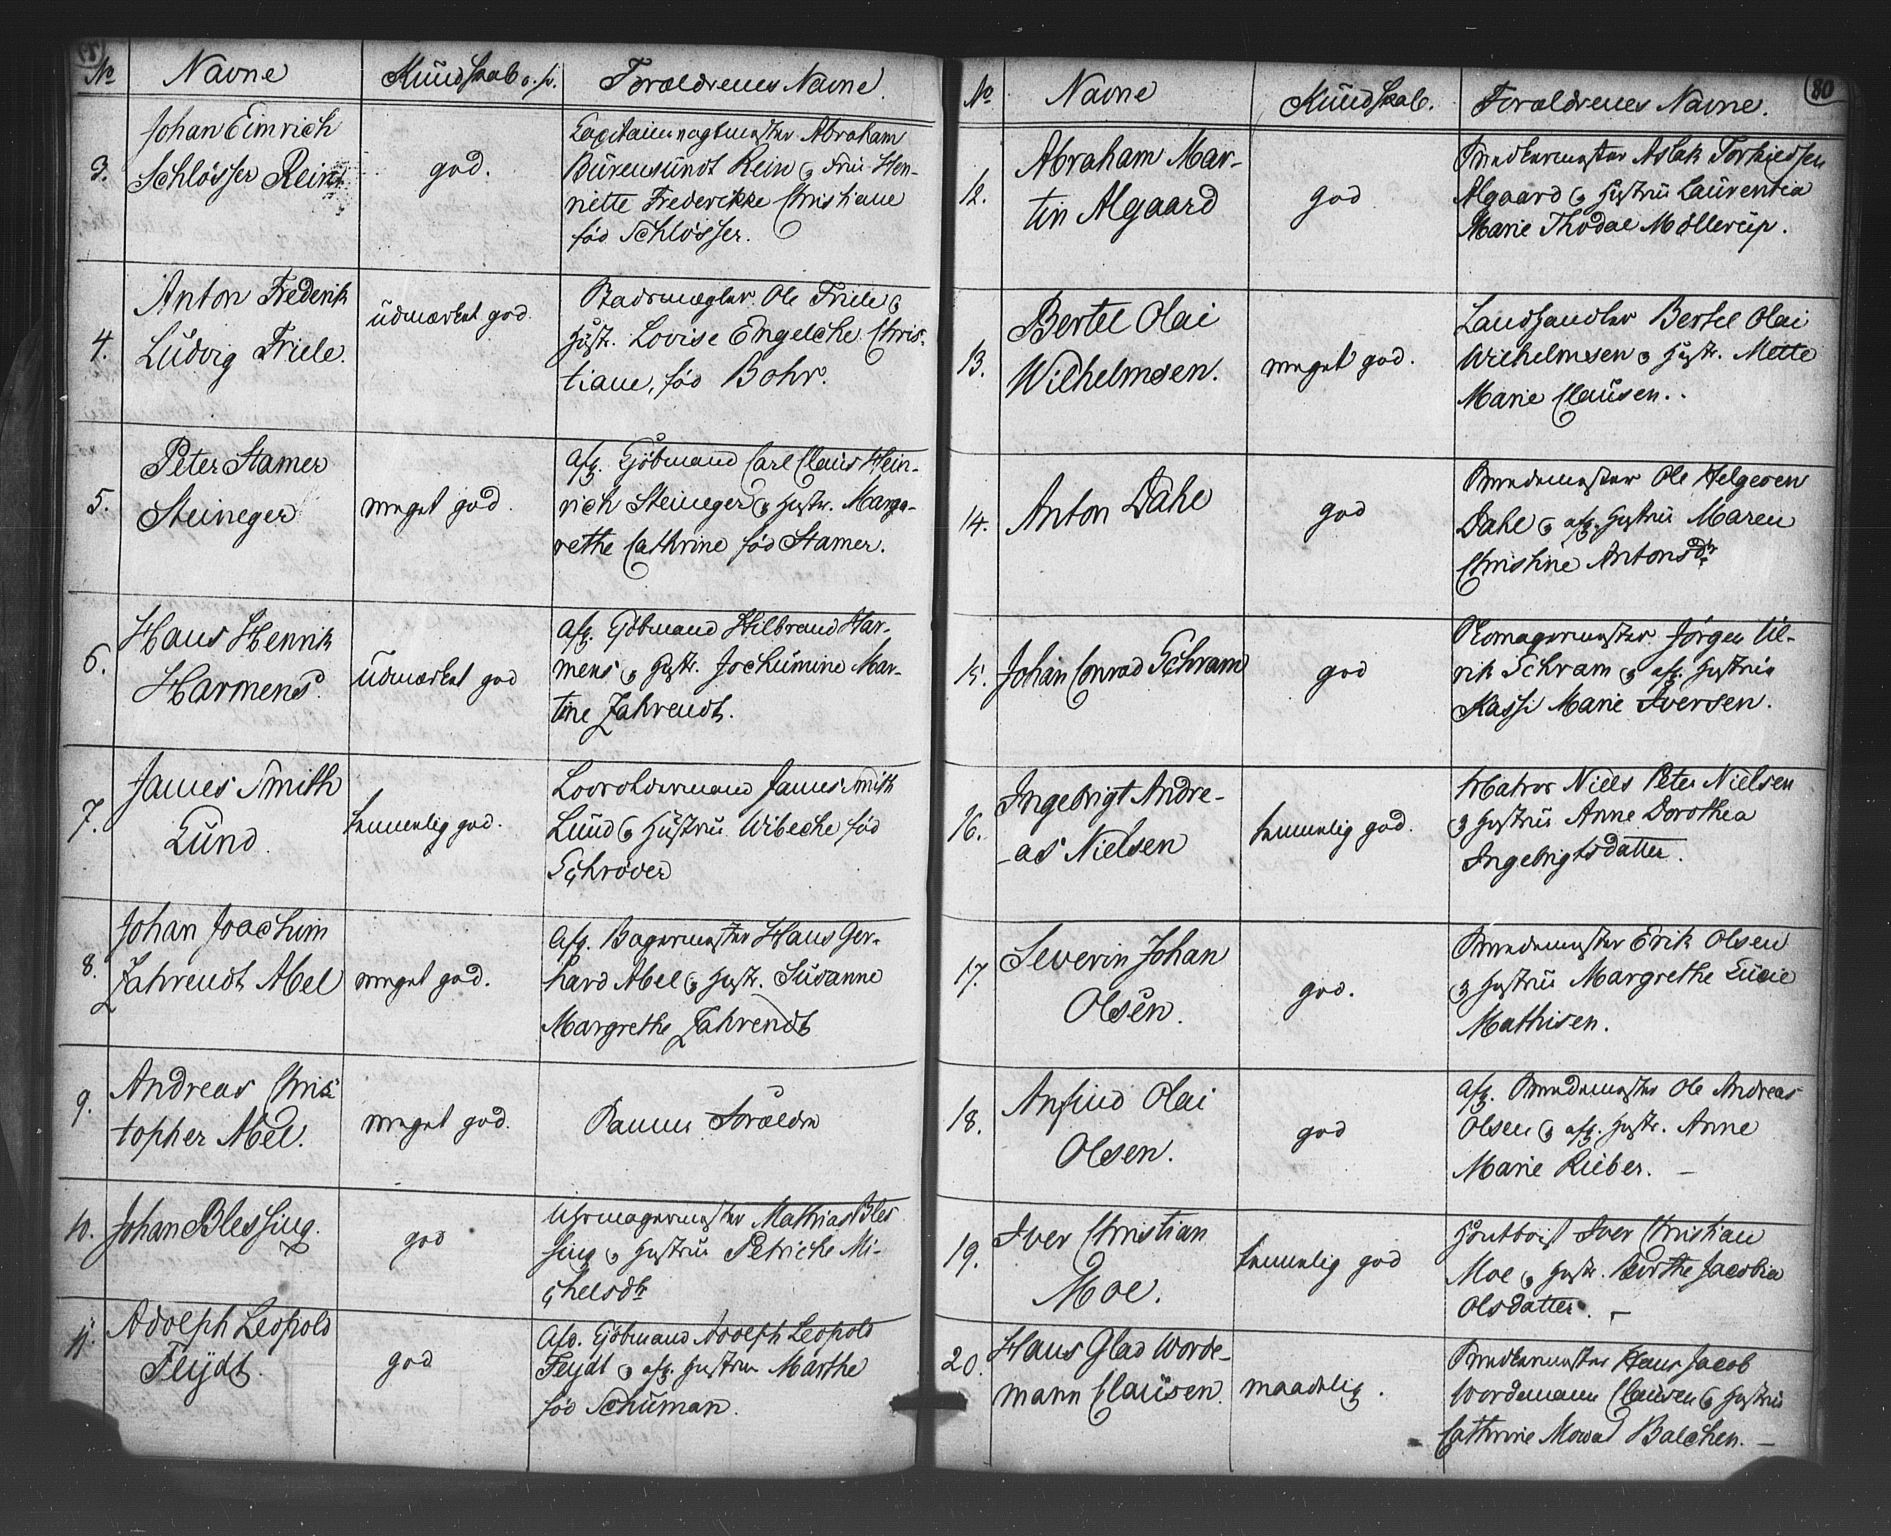 No Navne Kundskab o. s. Forældrenes Navne.
3. Johan Eimrich
Schlösser Rein
god.
Capitainvagtmester Abraham
Bürensundt Rein & Frue Hen-
riette Frederikke Christiane
fød Schlösser.
4. Anton Frederik
Ludvig Friele.
udmærket god.
Stadsmægler Ole Friele &
Hustr. Lovise Engelche Chris-
tiane, fød Bohr.
5. Peter Stamer
Steineger
meget god.
Afg. Kjöbmand Carl Claus Hein-
rich Steineger & Hustr. Marga-
rethe Cathrine fød Stamer.
6. Hans Henrik
Harmens.
Udmærket god
Afg. Kjöbmand Hilbrand Har-
mens & Hustr. Jochumine Mar-
tine Zahrendt.
7. James Smith
Lund.
temmelig god.
Loosoldermand James Smith
Lund & Hustru Wibecke fød
Schrøder
8. Johan Joachim
Zahrendt Abel
meget god.
Afg. Bagermester Hans Ger-
hard Abel & Hustr. Susanne
Margrethe Zahrendt
9. Andreas Chris-
topher Abel.
meget god.
Samme Forældre
10. Johan Blessing.
god
Uhrmagermester Mathias Bles
sing & Hustru Petricke Mi-
chelsdtr
11. Adolph Leopold
Fleydt.
god
Afd. Kjöbmand Adolph Leopold
Fleydt & afg. Hustrue Marthe
fød Schuman.
80
No Navne Kundskab. Forældrenes Navne.
12. Abraham Mar-
tin Algaard
god
Snedkermester Aslak Torkildsen
Algaard & Hustru Laurentia
Marie Thodal Möllerup.
13. Bertel Olai
Wilhelmsen.
meget god.
Landhandler Bertel Olai
Wilhelmsen & Hustr. Mette
Marie Clausen.
14. Anton Dahl
god
Smedemester Ole Helgesen
Dahl & afg. Hustru Maren
Christine Antonsdtr
15. Johan Conrad Schram
god
Skomagermester Jørgen Ul-
rik Schram & afg. Hustrue
Kassi Marie Iversen.
16. Ingebrigt Andre-
-as Nielsen
temmelig god.
Matros Niels Peter Nielsen
& Hustru Anne Dorothea
Ingebrigtsdatter.
17. Severin Johan
Olsen.
god.
Smedemester Erik Olsen
& Hustru Margrethe Lucie
Mathisen.
18. Anfind Olai
Olsen.
god
Afg. Smedemester Ole Andreas
Olsen & afg. Hustr. Anne
Marie Rieber. —
19. Iver Christian
Moe.
temmelig god
Houtboist Iver Christian
Moe & Hustr. Birthe Jacobia
Olsdatter. —
20. Hans Glad Worde-
mann Clausen.
maadelig.
Snedkermester Hans Jacob
Wordemann Clausen & Hustru
Cathrine Mowad Balchen. —